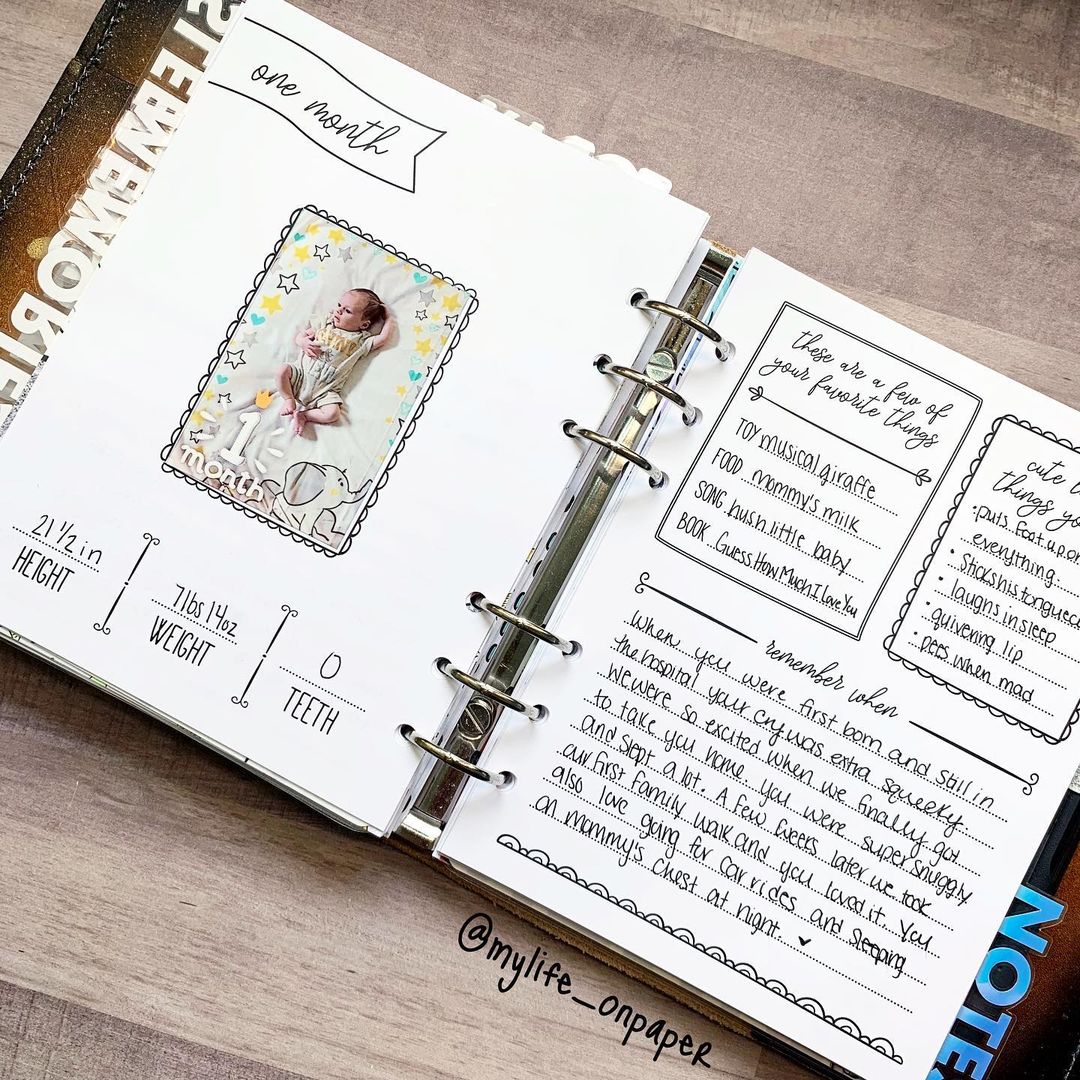 one month
1
month
21 1/2 in
HEIGHT
7lbs 14oz
WEIGHT
0
TEETH
these are a few of
your favorite things
TOY musical giraffe
FOOD mommy's milk
SONG hush little baby
BOOK Guess How Much I Love You
cute
things yo
• puts foot up on
everything
• sticks his tongue
• laughs in sleep
• quivering lip
• pees when mad
remember when
When you were first born and still in
the hospital your cry was extra squeeky
we were so excited when we finally got
to take you home. You were super snuggly
and slept a lot. A few weeks later we took
our first family walk and you loved it. You
also love going for car rides and sleeping
on mommy's chest at night.
@mylife_onpaper
NOTES